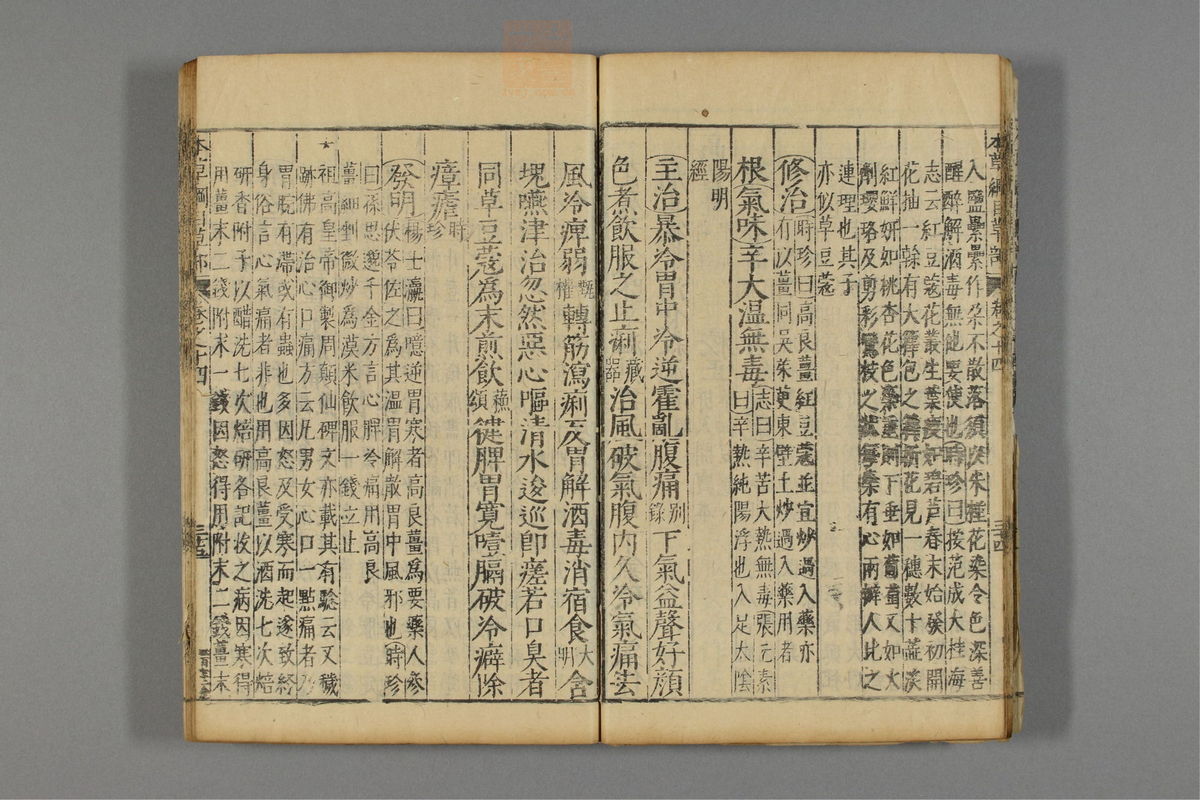 本草綱目草部 卷之十四 三十四
入鹽纍纍作朶不散落須以朱槿花染令色深善
醒醉解酒毒無他要使也時珍曰按范成大桂海
志云紅豆蔻花叢生葉瘦如碧蘆春末始發初開
花抽一幹有大籜包之籜拆花見一穗數十蕊淡
紅鮮妍如桃杏花色蕊重則下垂如葡萄又如火
齊瓔珞及剪彩鸞枝之狀每蕊有心兩瓣人比之
連理也其子
亦似草豆蔻
修治時珍曰高良薑紅豆蔻並宜炒過入藥亦
有以薑同吳茱萸東壁土炒過入藥用者
根氣味辛大温無毒志曰辛苦大熱無毒張元素
曰辛熱純陽浮也入足太陰
陽明
經
主治暴冷胃中冷逆霍亂腹痛别錄下氣益聲好顔
色煮飲服之止痢藏器治風破氣腹内久冷氣痛去
風冷痺弱甄權轉筋瀉痢反胃解酒毒消宿食大明含
塊嚥津治忽然惡心嘔清水逡巡即瘥若口臭者
同草豆蔻爲末煎飲蘇頌健脾胃寛噎膈破冷癖除
瘴瘧時珍
發明楊士瀛曰噫逆胃寒者高良薑爲要藥人參
茯苓佐之爲其温胃解散胃中風邪也時珍
曰孫思邈千金方言心脾冷痛用高良
薑細剉微炒爲末米飲服一錢立止
祖高皇帝御製周顛仙碑文亦載其有驗云又穢
跡佛有治心口痛方云凡男女心口一點痛者乃
胃脘有滯或有蟲也多因怒及受寒而起遂致終
身俗言心氣痛者非也用高良薑以酒洗七次焙
研香附子以醋洗七次焙研各記收之病因寒得
用薑末二錢附末一錢因怒得用附末二錢薑末
本草綱目草部 卷之十四 三十五